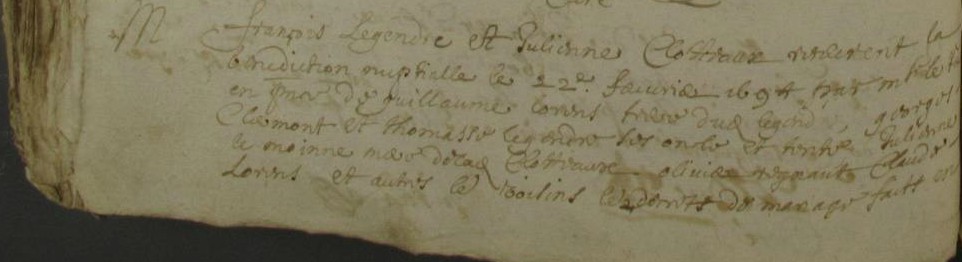 M françois Legendre et Julienne Clotteaux recevrent la
bénédiction nuptialle le 22e feuvrier 1694 par mre
en pnce de guillaume lorens frere dud legend georges
Clemont et thomasse legendre ses oncle et tente Julienne
le moinne mere de lad Clotteaux olivier Claude
Lorens et autres le voisins les decrets de mariage faits